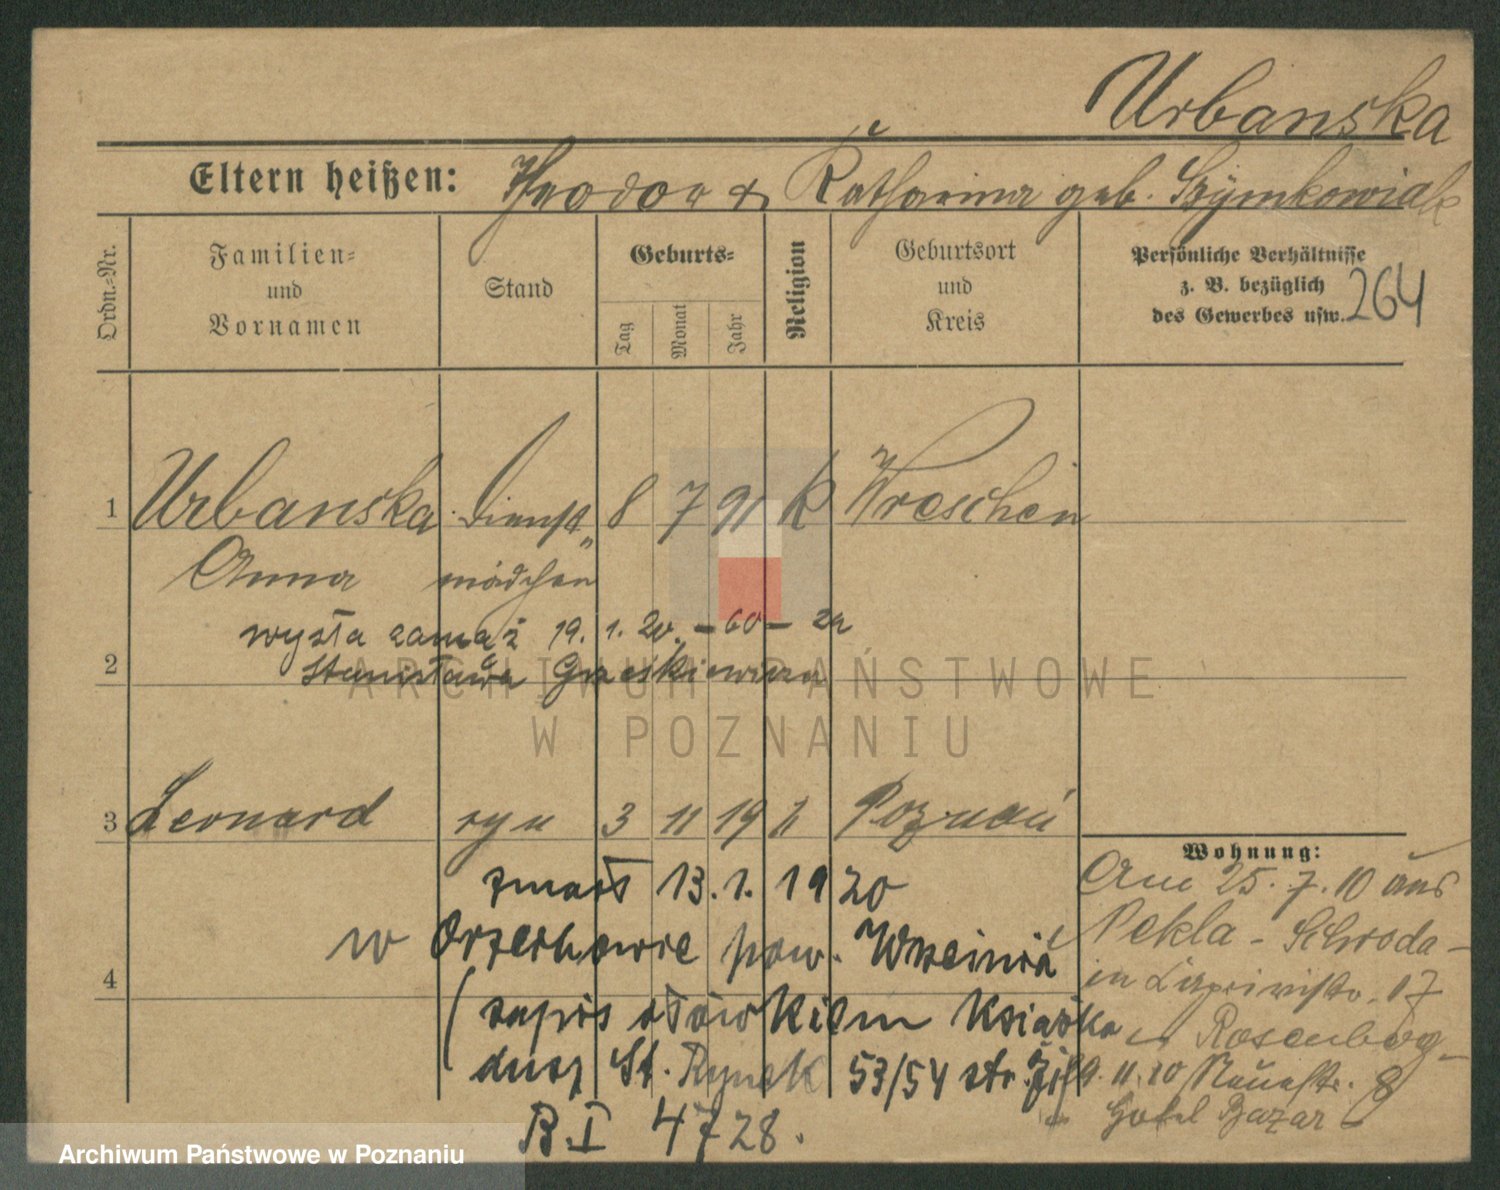 Urbanska
Eltern heißen: Theodor & Katharina geb. Szymkowiak
Ordn.-Nr.
Familien-
und
Vornamen
Stand
Geburts-
Tag
Monat
Jahr
Religion
Geburtsort
und
Kreis
Persönliche Verhältnisse
z. B. bezüglich
des Gewerbes usw.
264
1 Urbanska Dienst„ 8 7 91 k Wreschen
Anna mädchen
wyszła zamąż 19. 1. 20. – 60 – za
2 Stanisława Grześkiewicza
ARCHIWUM PAŃSTWOWE
W POZNANIU
3 Leonard syn 3 11 19 k Poznań
zmarł 13. 1. 1920
w Orzechowie pow. Września
4
(zapis ołówkiem książka
dusz St. Rynek 53/54 str.
B. I 4728.
Wohnung:
Am 25. 7. 10 aus
Pekla - Schroda -
in 17
Rosenberg -
9. 11. 10 Neuestr. 8
Hotel Bazar
Archiwum Państwowe w Poznaniu